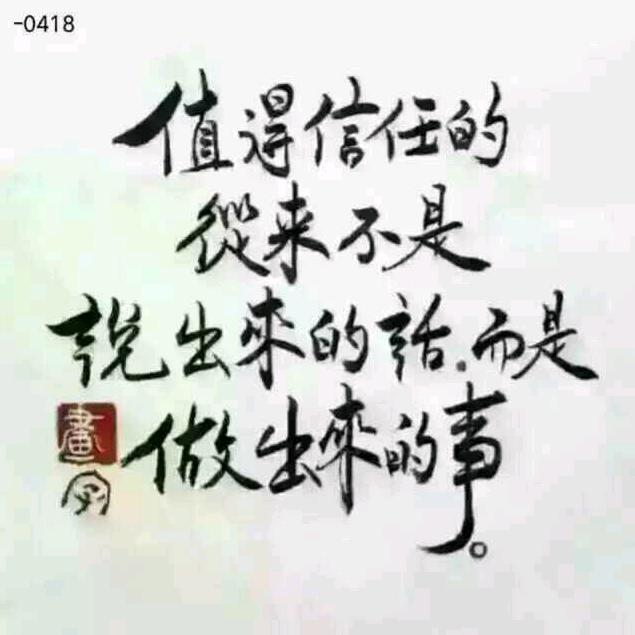 -0418
值得信任的
從来不是
說出來的話.而是
做出來的事。
畫